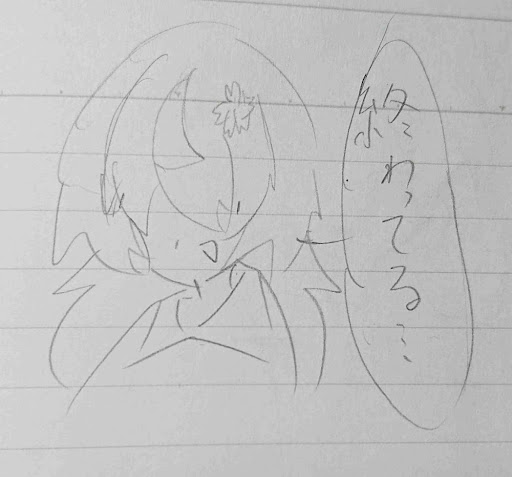 終わってる…